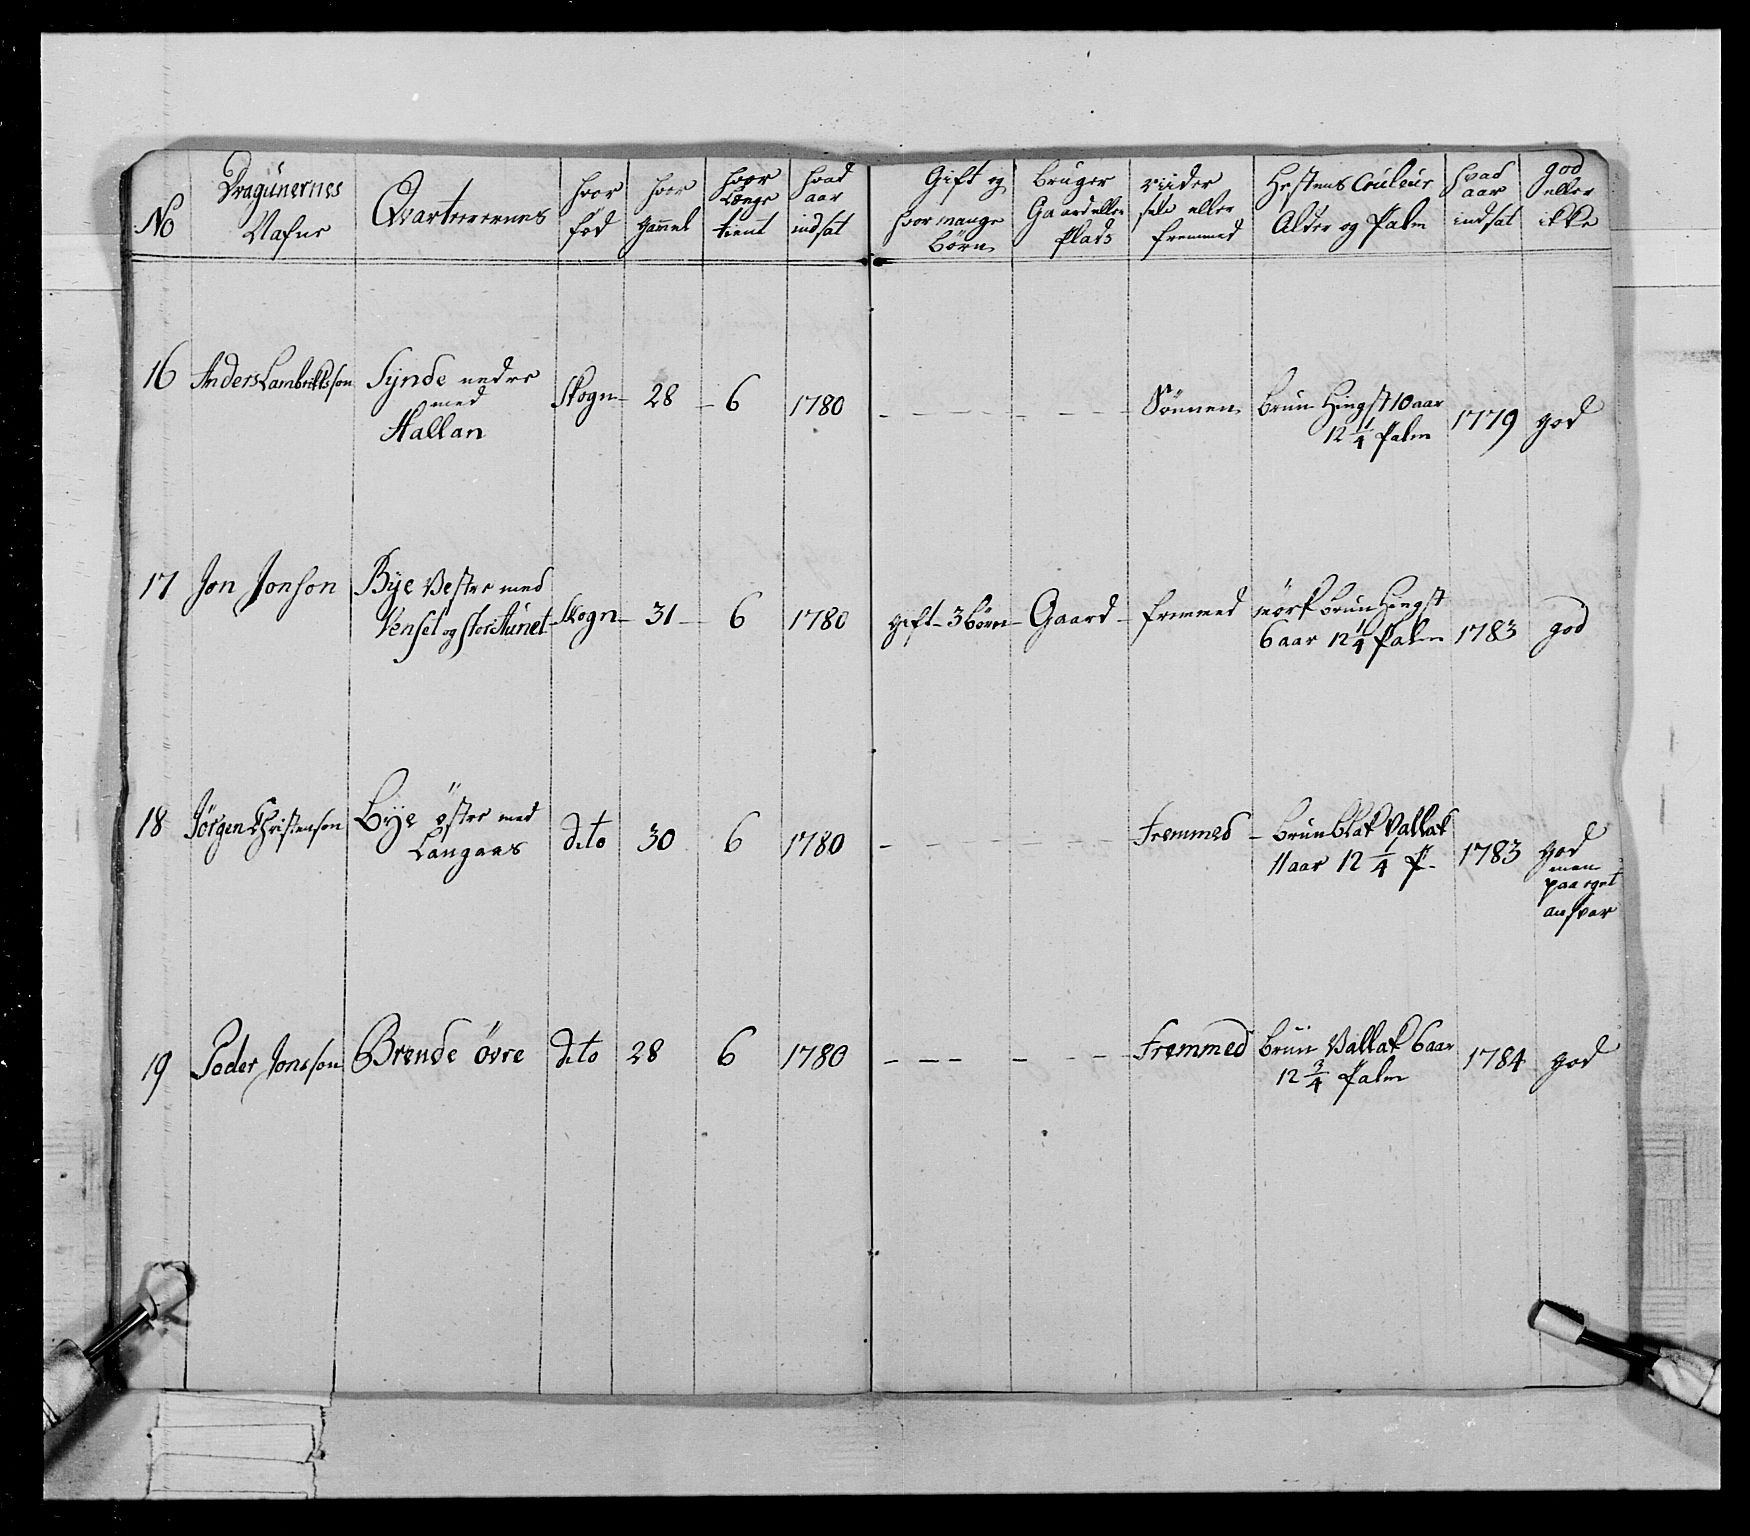 No
Dragunernes
Nafne
Qvarteerernes
hvor
fød
hvor
gammel
hvor
Længe
tient
hvad
aar
indsat
Gift og
hvor mange
Börn
bruger
Gaard eller
Plads
riider
selv eller
fremmed
Hestens Couleur
Alder og Palm
hvad
aar
indsat
god
eller
ikke
16 Anders Lambrektsson Synde nedre
med
Hallan
Skogn - 28 - 6 1780 - - - - - - - Sönnen brun Hingst 10 aar
12 1/4 Palm
1779 god
17 Jon Jonson Bye Vestre med
Vensel og stor Aunet
Skogn - 31 - 6 1780 gift - 3 börn - Gaard - fremmed mörk brun Hingst
6 aar 12 1/4 Palm
1783 god
18 Jörgen Christenson Bye östre med
Langaas
dito 30 6 1780 - - - - - - - Fremmed - brunblak Vallak
11 aar 12 1/4 P.
1783 god
men
paa eget
ansvar
19 Peder Jonsson Brende övre dito 28 6 1780 - - - - - - Fremmed brun Vallak 6 aar
12 3/4 Palm
1784 god